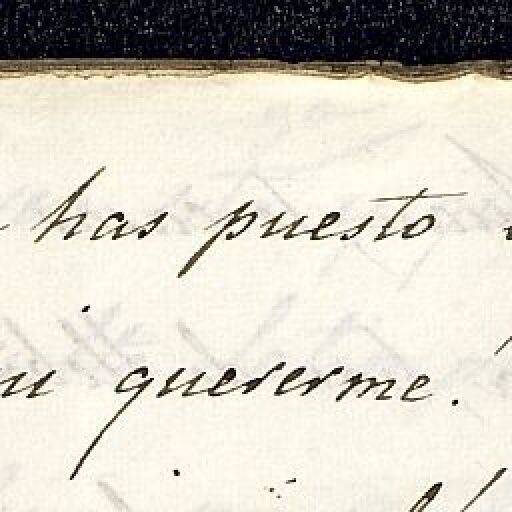 has puesto
quererme.